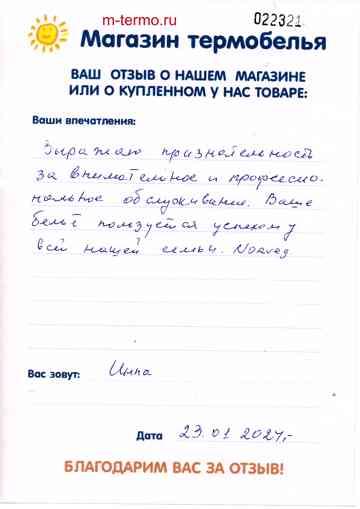 m-termo.ru
022321
Магазин термобелья
ВАШ ОТЗЫВ О НАШЕМ МАГАЗИНЕ
ИЛИ О КУПЛЕННОМ У НАС ТОВАРЕ:
Ваши впечатления:
Выражаю признательность
за внимательное и професио-
нальное обслуживание. Ваше
бельё пользуется успехом у
всей нашей семьи. Norveg
Вас зовут: Инна
Дата 23.01 2024г.
БЛАГОДАРИМ ВАС ЗА ОТЗЫВ!